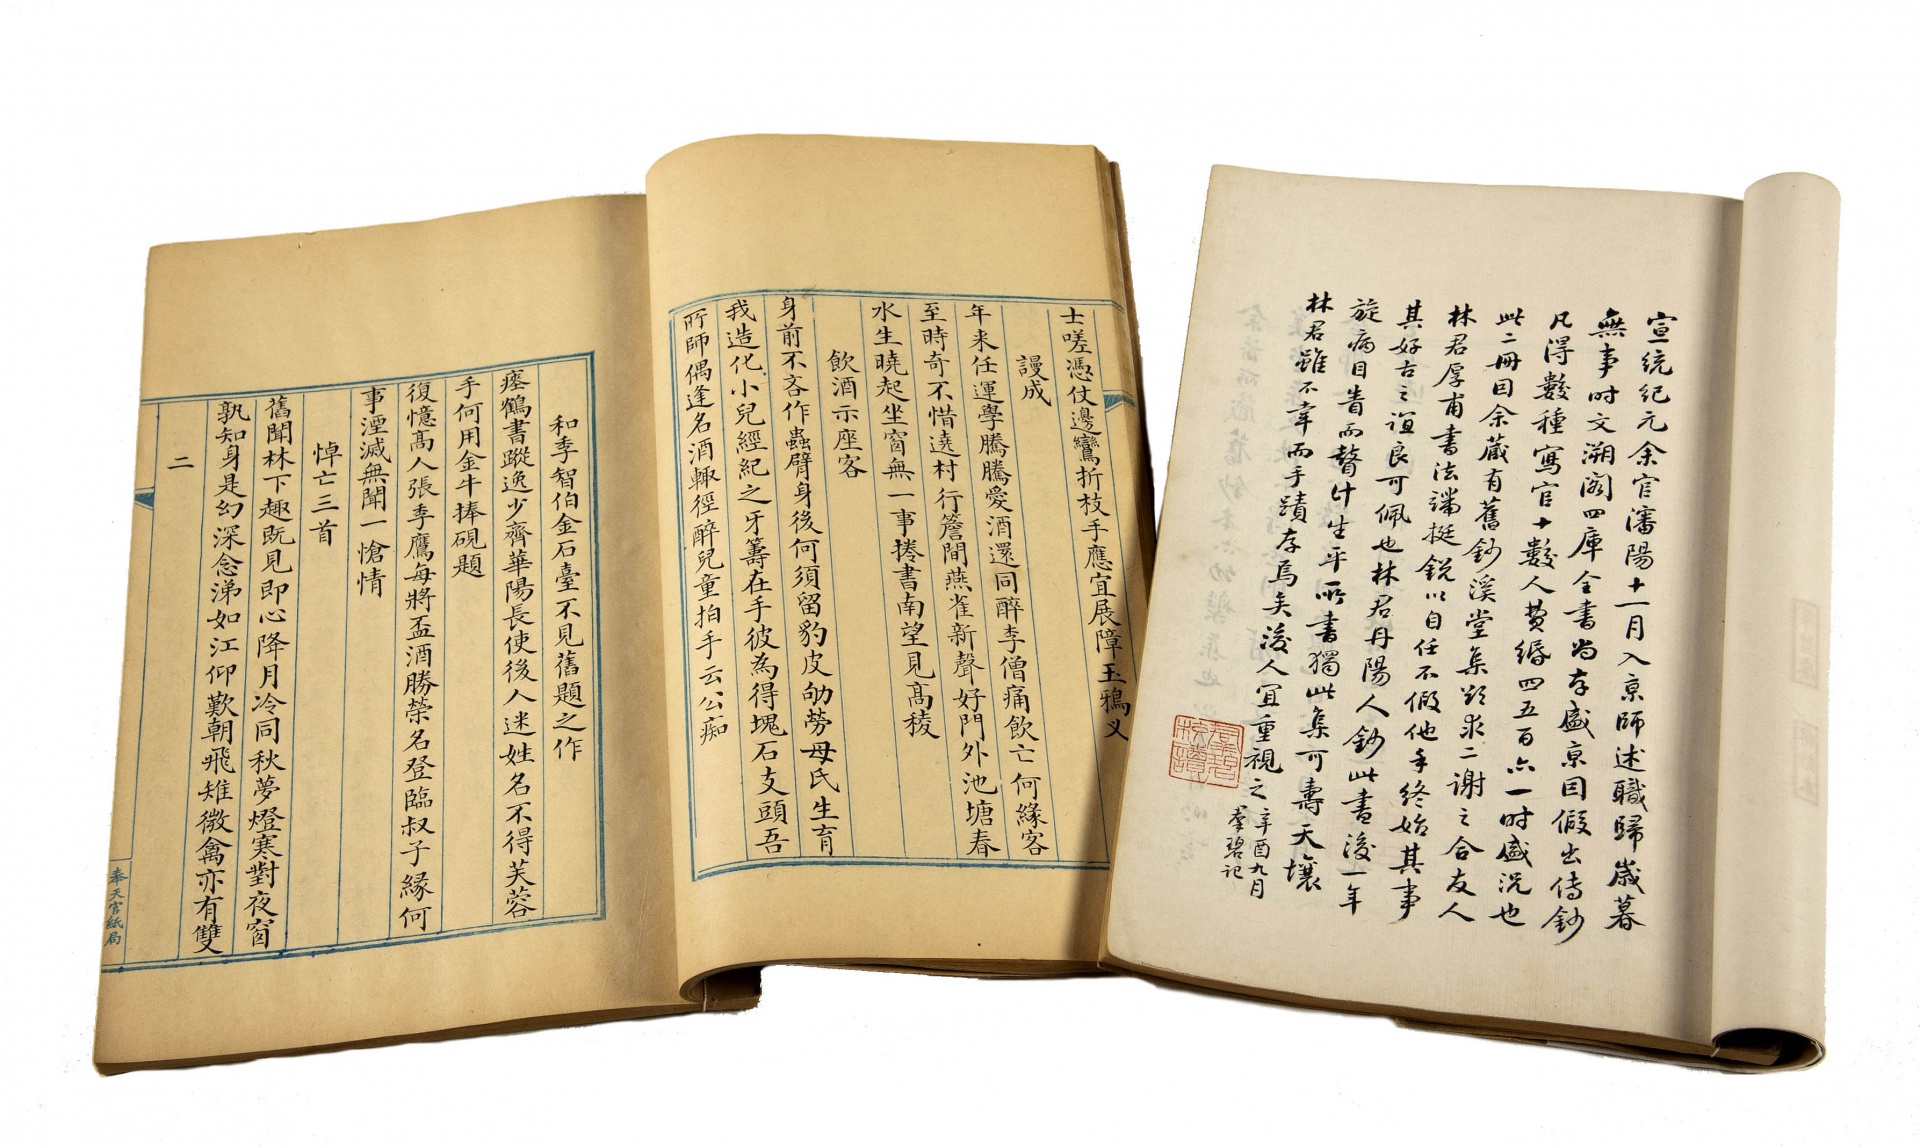 宣統紀元余官瀋陽十一月入京師述職歸歲暮
無事時文溯閣四庫全書尚存盛京因假出傳鈔
凡得數種寫官十數人費緡四五百亦一時盛況也
此二冊因余藏有舊鈔溪堂集欲求二謝之合友人
林君厚甫書法端挺銳以自任不假他手終始其事
其好古之誼良可佩也林君丹陽人鈔此書後一年
旋病目眚而瞽計生平所書獨此集可壽天壤
林君雖不幸而手蹟存焉矣後人宜重視之辛酉九月
羣碧記
士嗟憑仗邊鸞折枝手應宜展障玉鴉叉
謾成
年来任運學騰騰愛酒還同醉李僧痛飲亡何緣客
至時奇不惜遶村行簷間燕雀新聲好門外池塘春
水生曉起坐窗無一事捲書南望見高稜
飲酒示座客
身前不吝作蟲臂身後何須留豹皮劬勞母氏生育
我造化小兒經紀之牙籌在手彼為得塊石支頭吾
所師偶逢名酒輒徑醉兒童拍手云公痴
和季智伯金石臺不見舊題之作
瘞鶴書蹤逸少齊華陽長使後人迷姓名不得芙蓉
手何用金牛捧硯題
復憶高人張季鷹每將盃酒勝榮名登臨叔子緣何
事湮滅無聞一愴情
悼亡三首
舊聞林下趣既見即心降月冷同秋夢燈寒對夜窗
孰知身是幻深念涕如江仰歎朝飛雉微禽亦有雙
二
奉天官紙局